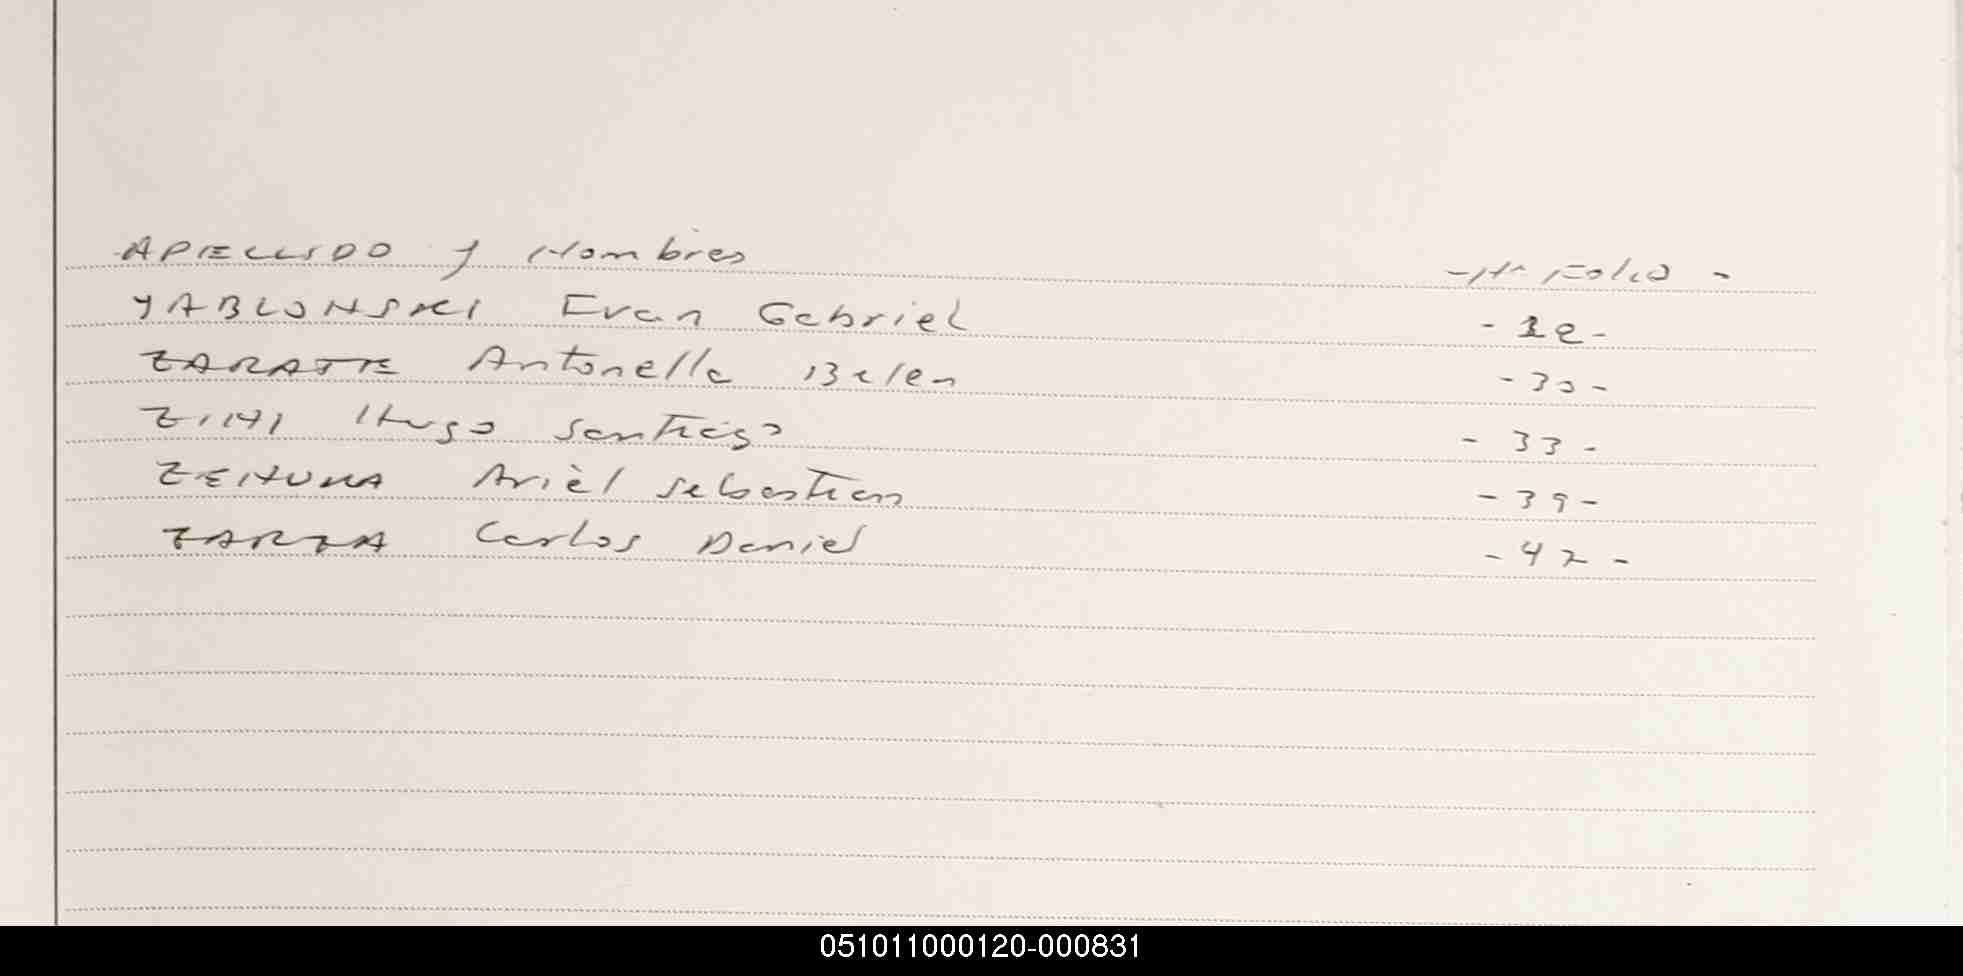 APELLIDO y Nombres - Nº Folio -
YABLONSKI Evan Gabriel - 12 -
ZARATE Antonella Belen - 30 -
ZINI Hugo Santiago - 33 -
ZEITUNA Ariel Sebastian - 39 -
ZARZA Carlos Daniel - 42 -
051011000120-000831